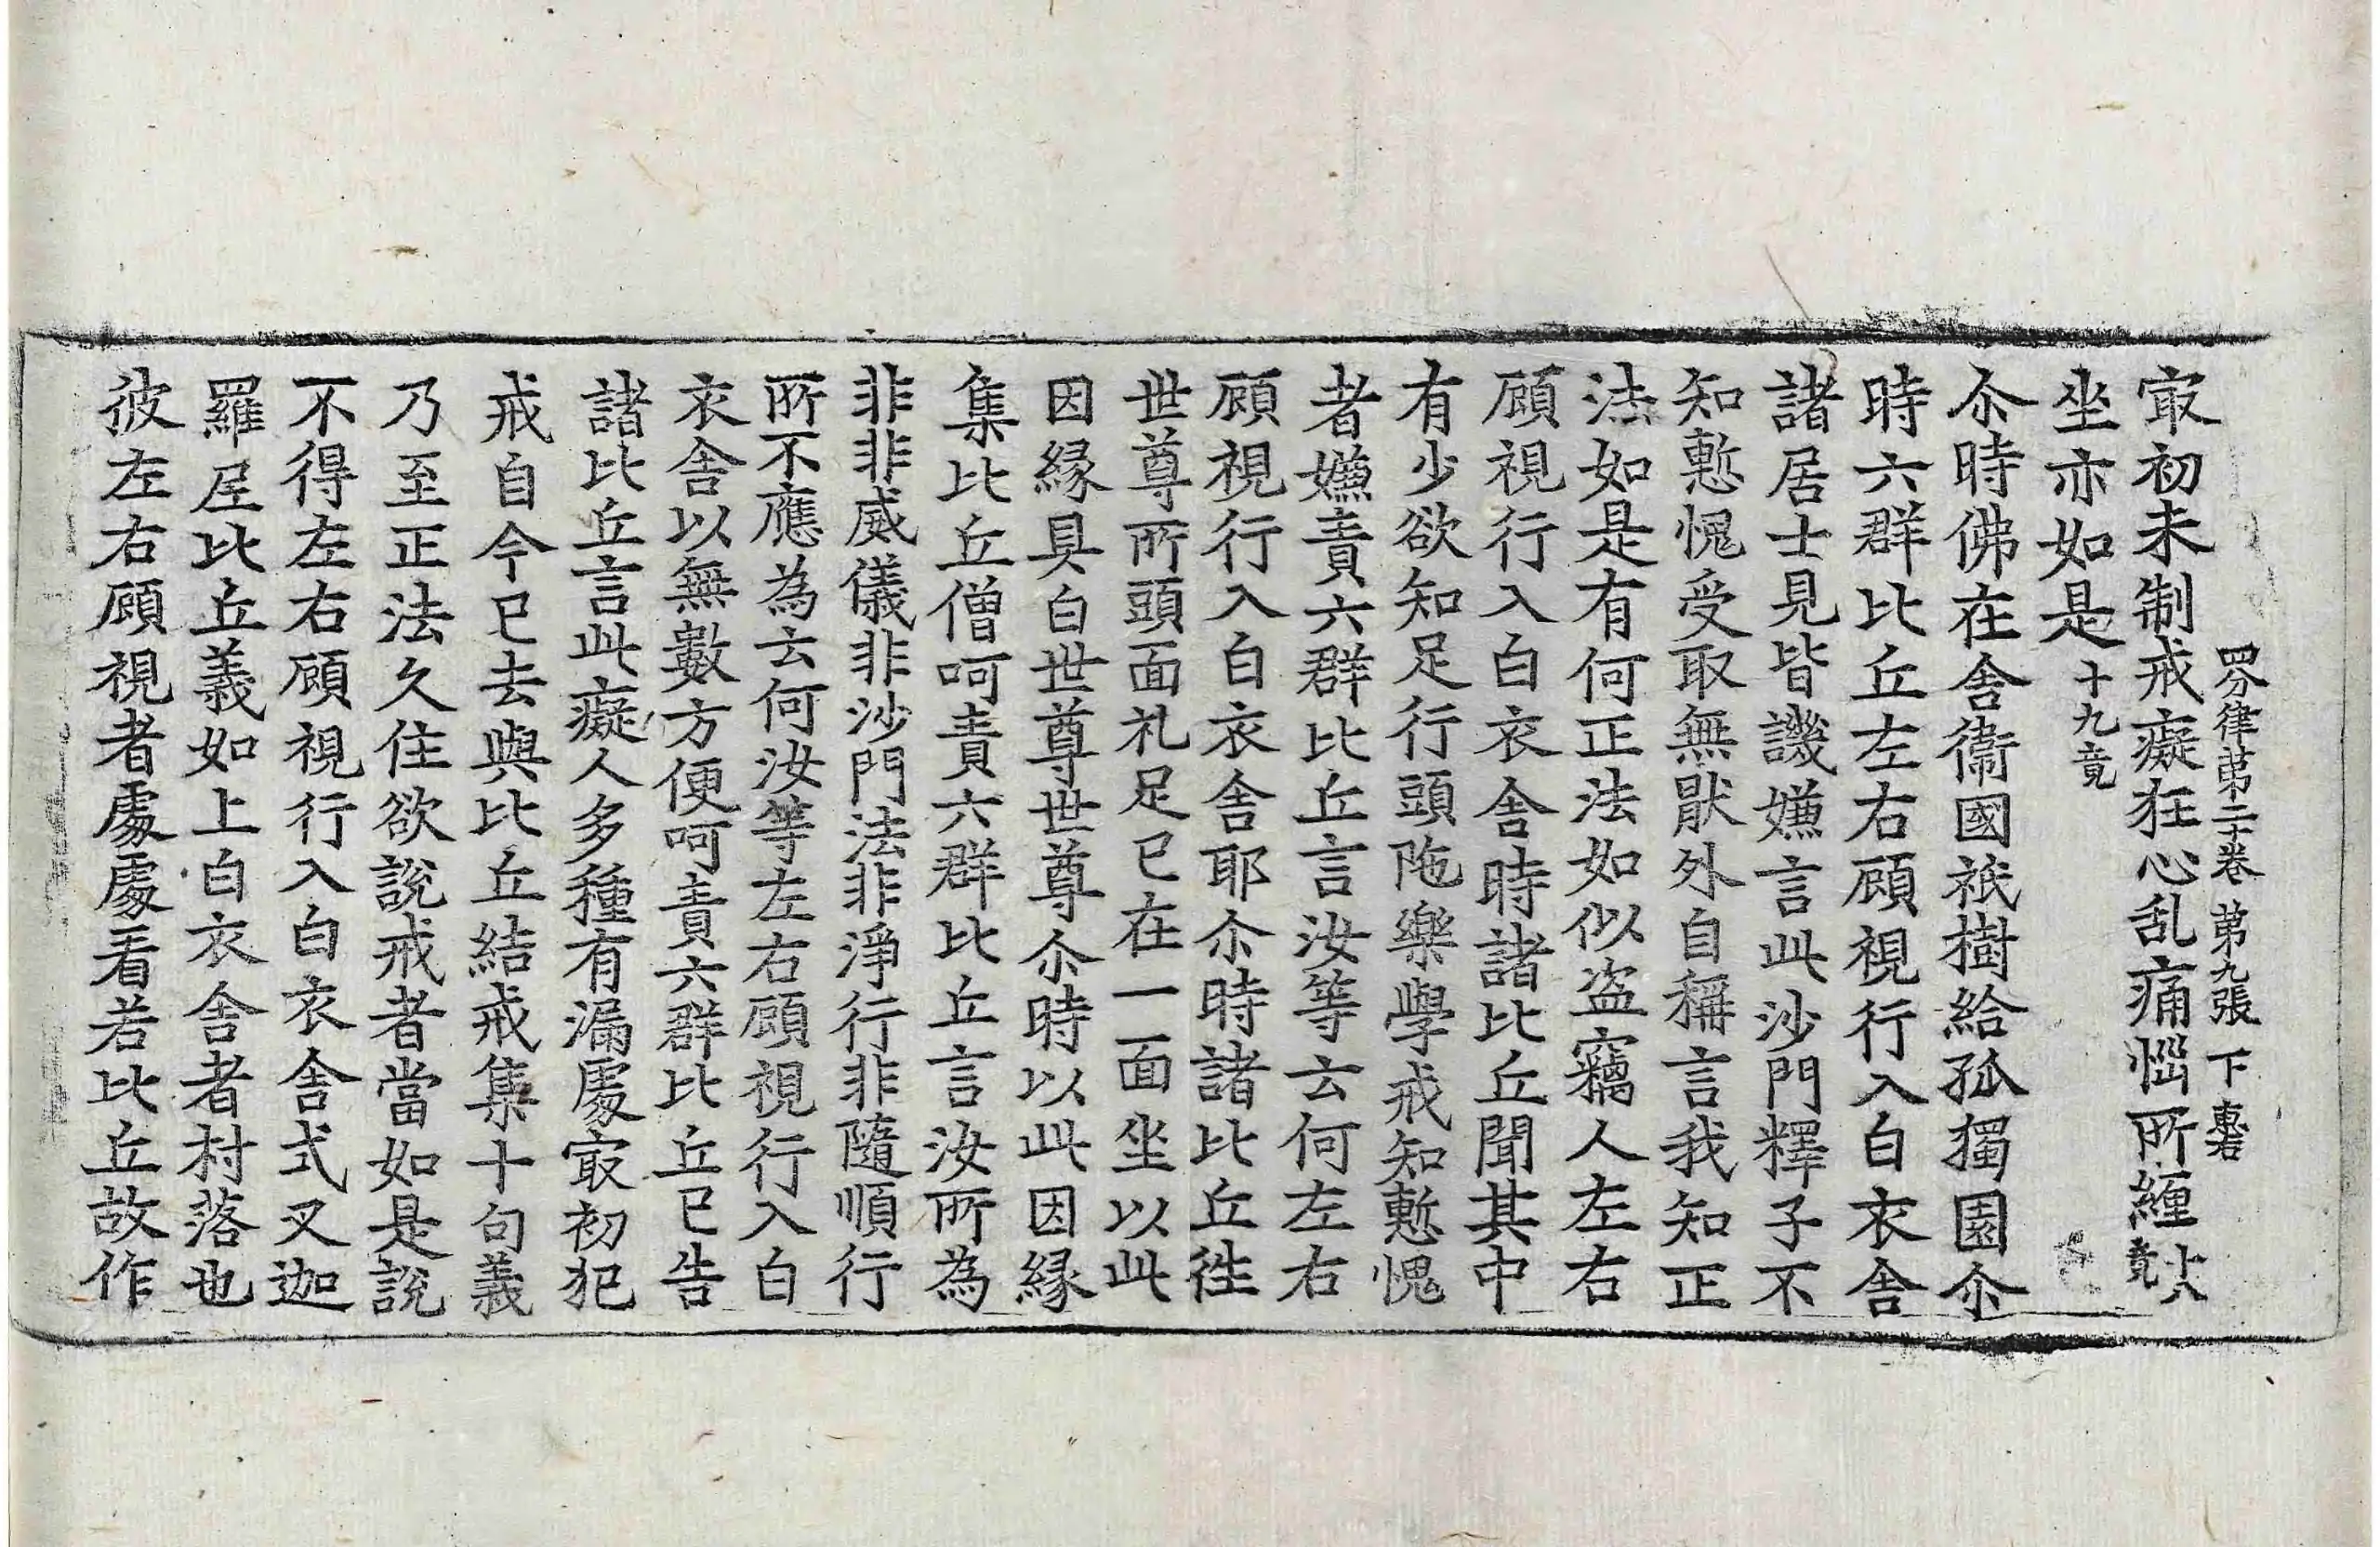 四分律第二十卷 第九張 下 惠君
㝡初未制戒癡狂心乱痛惱所纏十八竟
坐亦如是十九竟
尒時佛在舍衛國祇樹給孤獨園尒
時六群比丘左右顧視行入白衣舍
諸居士見皆譏嫌言此沙門釋子不
知慙愧受取無猒外自稱言我知正
法如是有何正法如似盗竊人左右
顧視行入白衣舍時諸比丘聞其中
有少欲知足行頭陁樂學戒知慙愧
者嫌責六群比丘言汝等云何左右
顧視行入白衣舍耶尒時諸比丘徃
世尊所頭面礼足已在一面坐以此
因縁具白世尊世尊尒時以此因縁
集比丘僧呵責六群比丘言汝所為
非非威儀非沙門法非淨行非隨順行
所不應為云何汝等左右顧視行入白
衣舍以無數方便呵責六群比丘已告
諸比丘言此癡人多種有漏處㝡初犯
戒自今已去與比丘結戒集十句義
乃至正法久住欲說戒者當如是說
不得左右顧視行入白衣舍式叉迦
羅𡱝比丘義如上白衣舍者村落也
彼左右顧視者處處看若比丘故作